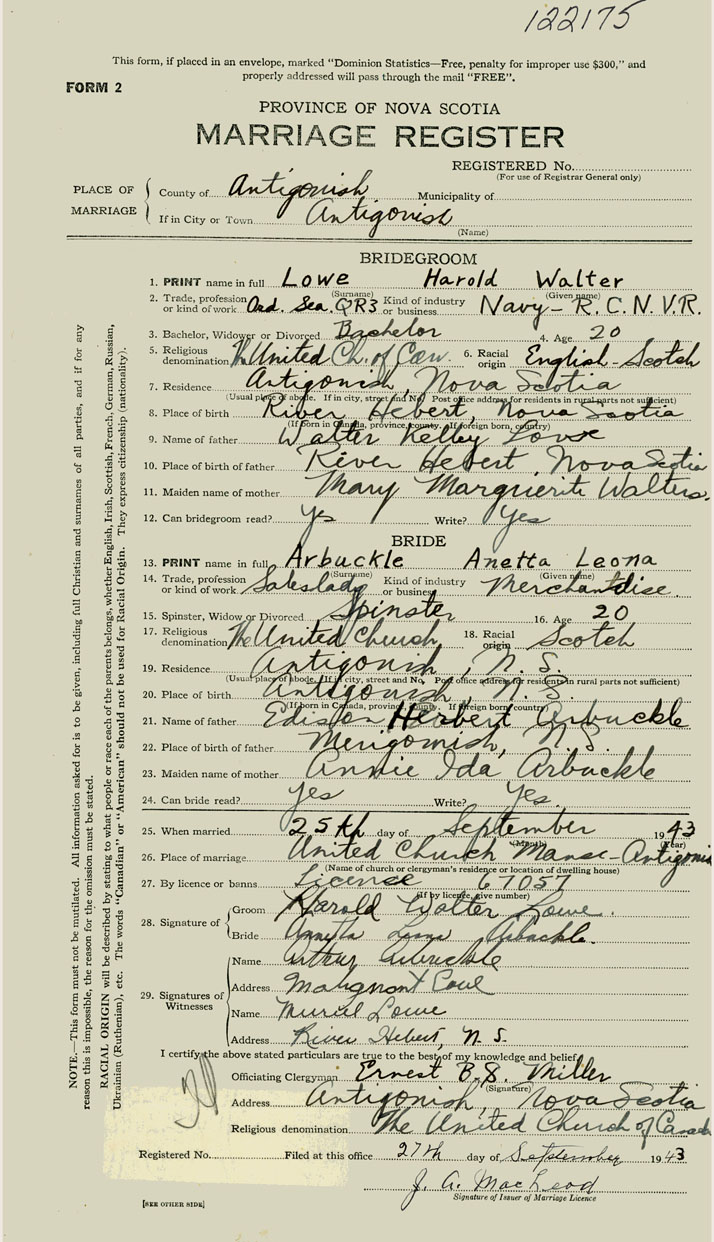 122175
This form, if placed in an envelope, marked "Dominion Statistics—Free, penalty for improper use $300," and
properly addressed will pass through the mail "FREE".
FORM 2
PROVINCE OF NOVA SCOTIA
MARRIAGE REGISTER
REGISTERED No.
(For use of Registrar General only)
PLACE OF MARRIAGE
County of Antigonish Municipality of
If in City or Town Antigonish
(Name)
BRIDEGROOM
1. PRINT name in full Lowe Harold Walter
(Surname) (Given name)
2. Trade, profession or kind of work Ord. Sea. QR3 Kind of industry or business Navy - R.C.N.V.R.
3. Bachelor, Widower or Divorced Bachelor 4. Age 20
5. Religious denomination The United Ch. of Can. 6. Racial origin English-Scotch
7. Residence Antigonish, Nova Scotia
(Usual place of abode. If in city, street and No. Post office address for residents in rural parts not sufficient)
8. Place of birth River Hebert, Nova Scotia
(If born in Canada, province, county. If foreign born, country)
9. Name of father Walter Kelley Lowe
10. Place of birth of father River Hebert, Nova Scotia
11. Maiden name of mother Mary Marguerite Walters.
12. Can bridegroom read? Yes Write? Yes
BRIDE
13. PRINT name in full Arbuckle Anetta Leona
(Surname) (Given name)
14. Trade, profession or kind of work Saleslady Kind of industry or business Merchantdise.
15. Spinster, Widow or Divorced Spinster 16. Age 20
17. Religious denomination The United Church 18. Racial origin Scotch
19. Residence Antigonish, N. S.
(Usual place of abode. If in city, street and No. Post office address for residents in rural parts not sufficient)
20. Place of birth Antigonish, N. S.
(If born in Canada, province, county. If foreign born, country)
21. Name of father Edison Herbert Arbuckle
22. Place of birth of father Merigomish, N.S.
23. Maiden name of mother Annie Ida Arbuckle
24. Can bride read? Yes Write? Yes.
25. When married 25th day of September 1943
(Month) (Year)
26. Place of marriage United Church Manse - Antigonis
(Name of church or clergyman's residence or location of dwelling house)
27. By licence or banns License 67057
(If by licence, give number)
28. Signature of
Groom Harold Walter Lowe.
Bride Annetta Leona Arbuckle.
29. Signatures of Witnesses
Name Arthur Arbuckle
Address Malignant Cove
Name Muriel Lowe
Address River Hebert, N. S.
I certify the above stated particulars are true to the best of my knowledge and belief.
Officiating Clergyman Ernest B.S. Miller
(Signature)
Address Antigonish, Nova Scotia
Religious denomination The United Church of Canada
Registered No. Filed at this office 27th day of September 1943
J. A. MacLeod
Signature of Issuer of Marriage Licence
[SEE OTHER SIDE]
NOTE.—This form must not be mutilated. All information asked for is to be given, including full Christian and surnames of all parties, and if for any
reason this is impossible, the reason for the omission must be stated.
RACIAL ORIGIN will be described by stating to what people or race each of the parents belongs, whether English, Irish, Scottish, French, German, Russian,
Ukrainian (Ruthenian), etc. The words "Canadian" or "American" should not be used for Racial Origin. They express citizenship (nationality).